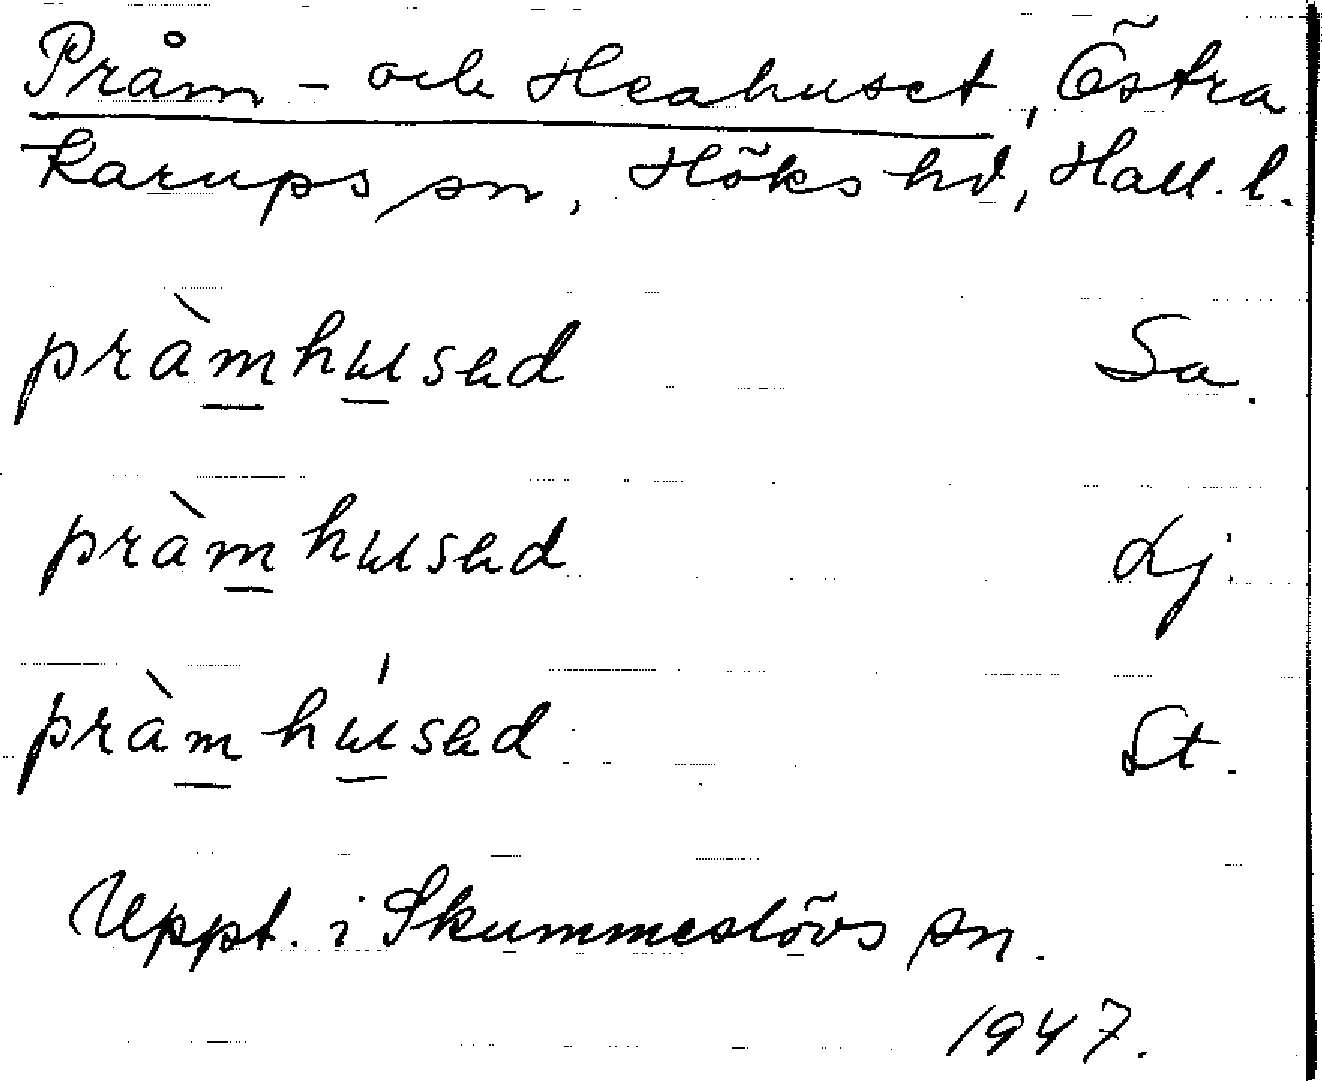 Pråm- och Heahuset, Östra
Karups sn, Höks hd, Hall. l.
pràmhusad Sa.
pràmhusad Lj.
pràmhúsad St.
Uppt. i Skummeslövs sn.
1947.